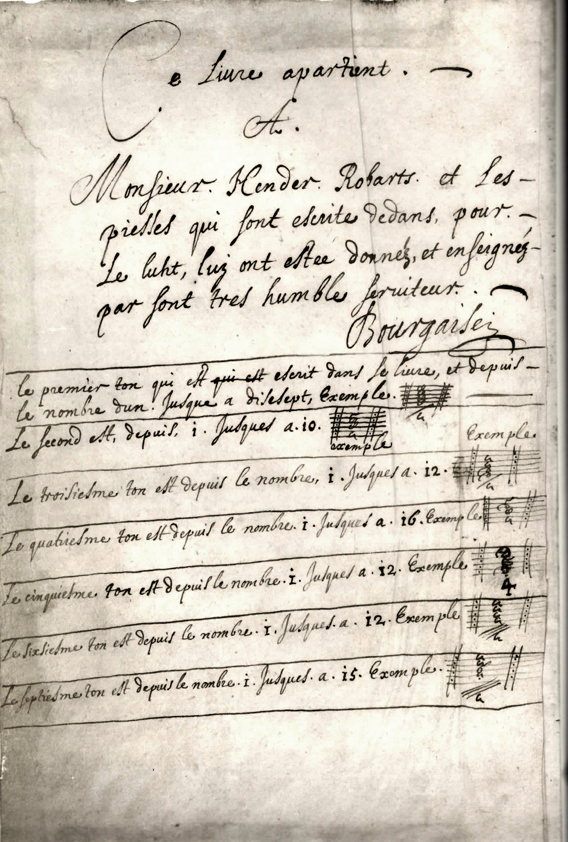 Ce Livre apartient.
A.
Monsieur. Hender. Robarts. et Les-
piesses qui sont escrite dedans, pour.
Le luht, luy ont estée donnez, et enseignéz
par sont tres humble serviteur.
Bourgaisez
le premier ton qui est qui est escrit dans se livre, et depuis
le nombre dun. Jusque a disesept, Exemple.
Le second est, depuis, i. Jusques a. io. exemple
Le troisiesme ton est depuis le nombre, i. Jusques a. i2. Exemple
Le quatriesme ton est depuis le nombre. i. Jusques a. i6. Exemple
Le cinquiesme ton est depuis le nombre. i. Jusques a. i2. Exemple
Le sixsiesme ton est depuis le nombre. i. Jusques. a. i2. Exemple
Le septiesme ton est depuis le nombre. i. Jusques. a. i5. Exemple.